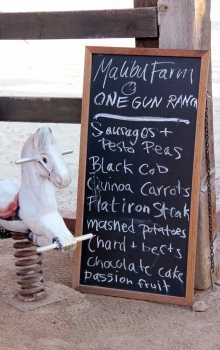 Malibu Farm
@
ONE GUN RANCH
Sausages +
Pesto Peas
Black Cod
Quinoa Carrots
Flat iron Steak
mashed potatoes
Chard + beets
chocolate cake
passion fruit